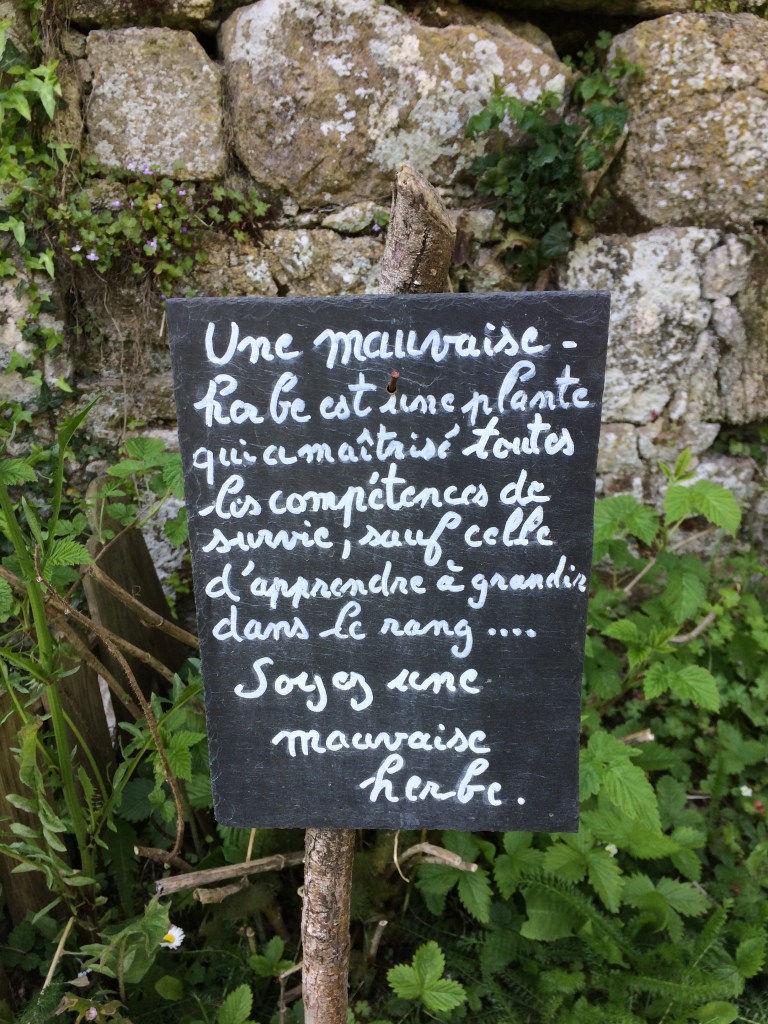 Une mauvaise -
herbe est une plante
qui a maîtrisé toutes
les compétences de
survie, sauf celle
d'apprendre à grandir
dans le rang ....
Soyez une
mauvaise
herbe.